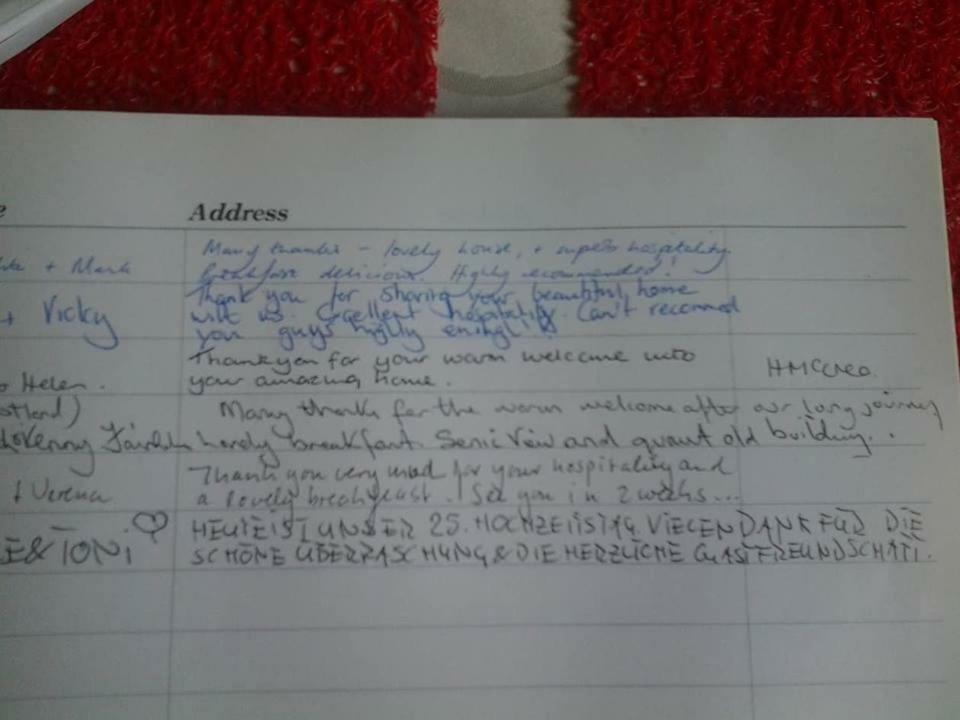 Address
Many thanks - lovely house, + superb hospitality.
+ Mark
Breakfast delicious. Highly recommended!
Thank you for sharing your beautiful home
+ Vicky
with us. Excellent hospitality. Can't recomend
you guys highly enough!
Thankyou for your warm welcome into
Helen.
your amazing home.
HMCCrea
Many thanks for the warm welcome after our long journey
Kenny
Lovely breakfast. Senic View and quant old building.
Thank you very much for your hospitality and
+ Verena
a lovely breakfast. See you in 2 weeks...
HEUTE IST UNSER 25. HOCHZEITSTAG. VIELEN DANK FÜR DIE
& TONI
SCHÖNE ÜBERRASCHUNG & DIE HERZLICHE GASTFREUNDSCHAFT.